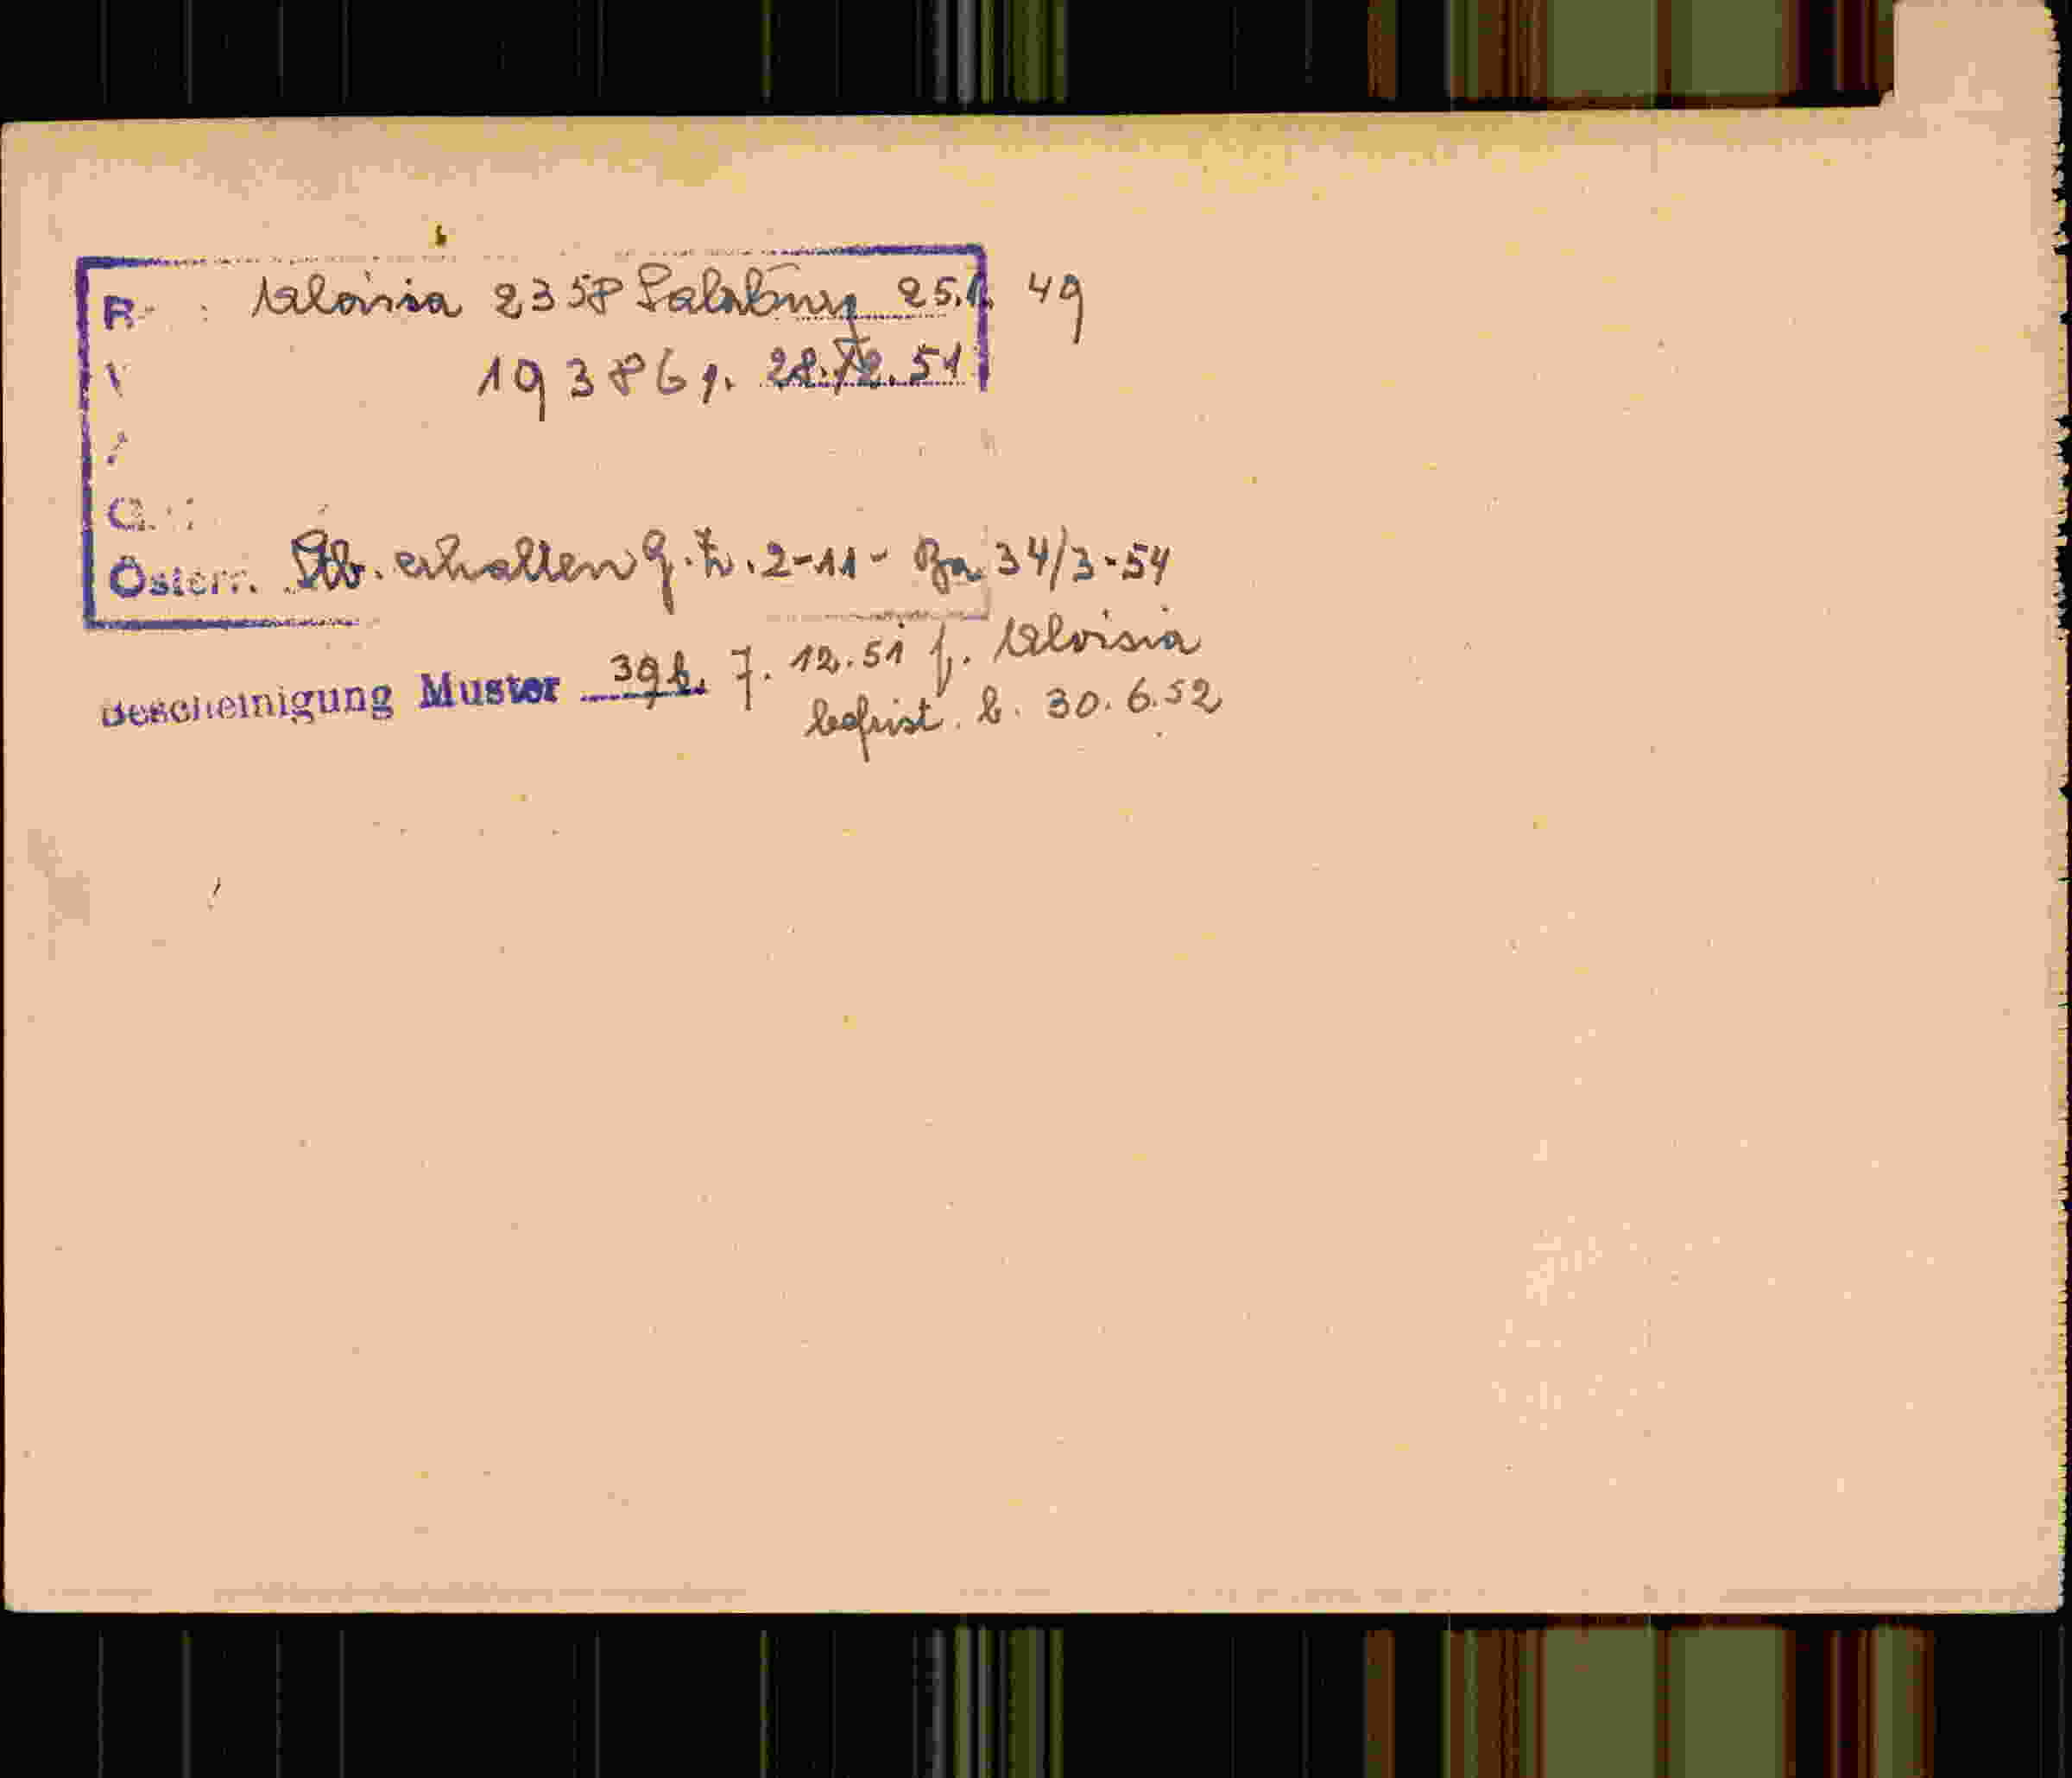 Aloisia 2358 Salzburg 25.1. 49
19386 p. 28.12.51
Österr. Stb. erhalten G.Z. 2-11- Ba 34/3-54
Bescheinigung Muster 39b. 7. 12.51 f. Aloisia
befrist. b. 30.6.52